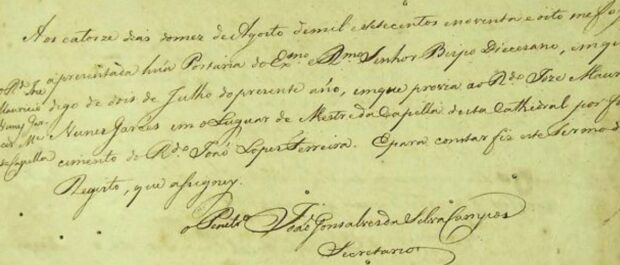 Aos catorze dias domez de Agosto demil esetecentos inoventa e oito me foy
o Rdo Joze
Mauricio
Nunez Gar
ces Me
da Capella
apresentada huã Portaria do Exmo e Rmo Senhor Bispo Diocesano, emque
digo de dois de Julho do prezente año, emque provia ao Rdo Joze Mauri
Nunez Garces em o Lugar de Mestre da Capella desta Cathedral por
cimento do Rdo João Lopes Ferreira. Epara constar fiz este Termo d
Registo, que asigney.
o Penito João Gonsalves da Silva Campos
Secretario